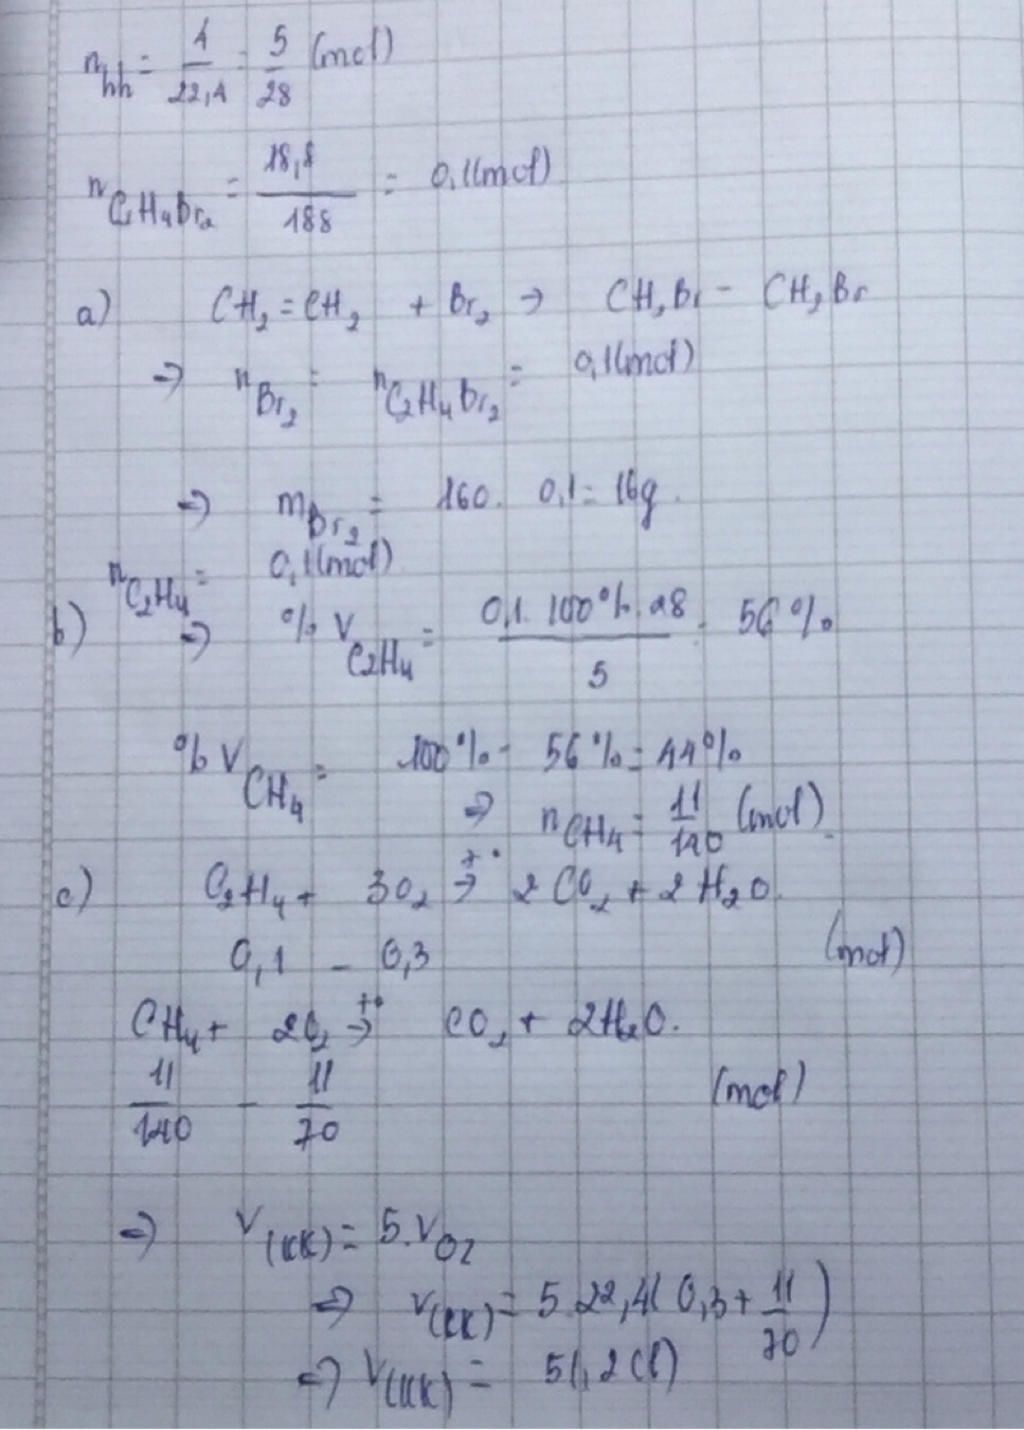 n_hh = 4/22,4 = 5/28 (mol)
n_C2H4Br2 = 18,8/188 = 0,1(mol)
a) CH2=CH2 + Br2 → CH2Br - CH2Br
⇒ n_Br2 = n_C2H4Br2 = 0,1(mol)
⇒ m_Br2 = 160. 0,1 = 16g.
n_C2H4 = 0,1(mol)
b) ⇒ %V_C2H4 = 0,1.100%.28/5 = 56%
%V_CH4 = 100% - 56% = 44%
⇒ n_CH4 = 11/140 (mol).
c) C2H4 + 3O2 t°→ 2CO2 + 2H2O.
0,1 - 0,3 (mol)
CH4 + 2O2 t°→ CO2 + 2H2O.
11/140 - 11/70 (mol)
⇒ V(KK) = 5.VO2
⇒ V(KK) = 5.22,4(0,3 + 11/70)
⇒ V(KK) = 51,2(l)